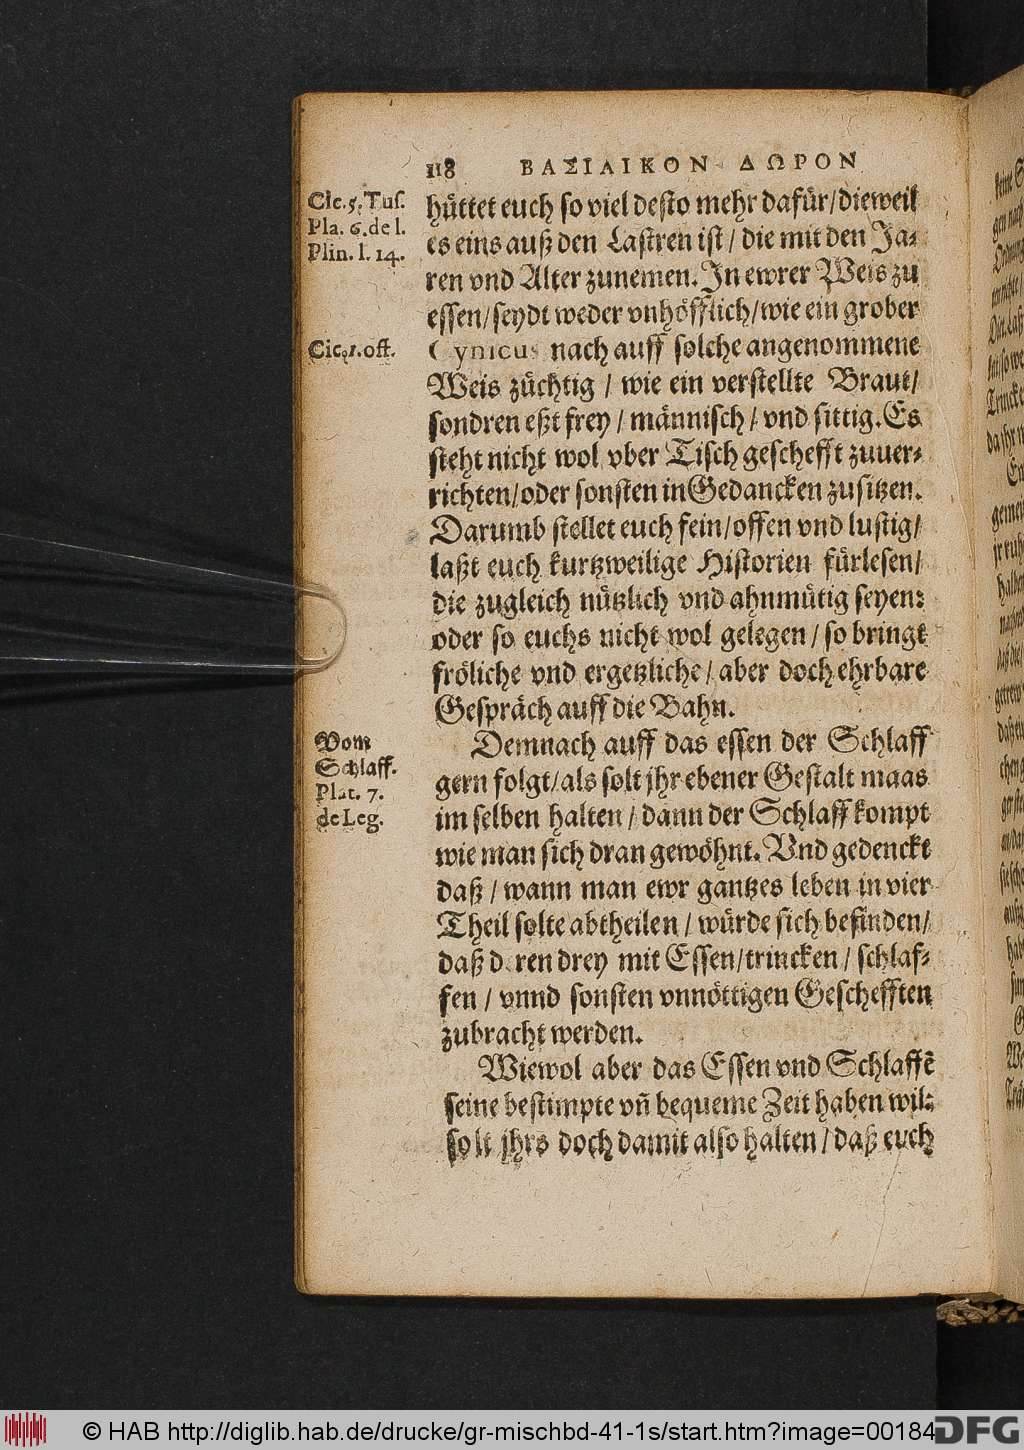 118 ΒΑΣΙΛΙΚΟΝ ΔΩΡΟΝ
Cic. 5. Tus.
Pla. 6. de l.
Plin. l. 14.
hüttet euch so viel desto mehr dafür/ dieweil
es eins auß den Lastren ist / die mit den Ja-
ren vnd Alter zunemen. In ewrer Weis zu
essen/ seydt weder vnhöfflich/ wie ein grober
Cic. 1. off.
Cynicus nach auff solche angenommene
Weis züchtig / wie ein verstellte Braut/
sondren eßt frey / männisch/ vnd sittig. Es
steht nicht wol vber Tisch geschefft zuuer-
richten/ oder sonsten in Gedancken zusitzen.
Darumb stellet euch fein/ offen vnd lustig/
laßt euch kurtzweilige Historien fürlesen/
die zugleich nützlich vnd ahnmütig seyen:
oder so euchs nicht wol gelegen / so bringt
fröliche vnd ergetzliche/ aber doch ehrbare
Gespräch auff die Bahn.
Vom
Schlaff.
Plat. 7.
de Leg.
Demnach auff das essen der Schlaff
gern folgt/ als solt jhr ebener Gestalt maas
im selben halten / dann der Schlaff kompt
wie man sich dran gewöhnt. Vnd gedenckt
daß / wann man ewr gantzes leben in vier
Theil solte abtheilen / würde sich befinden/
daß deren drey mit Essen/ trincken / schlaf-
fen / vnnd sonsten vnnöttigen Geschefften
zubracht werden.
Wiewol aber das Essen vnd Schlaffē
seine bestimpte vñ bequeme Zeit haben wil:
solt jhrs doch damit also halten / daß euch
© HAB http://diglib.hab.de/drucke/gr-mischbd-41-1s/start.htm?image=00184
DFG